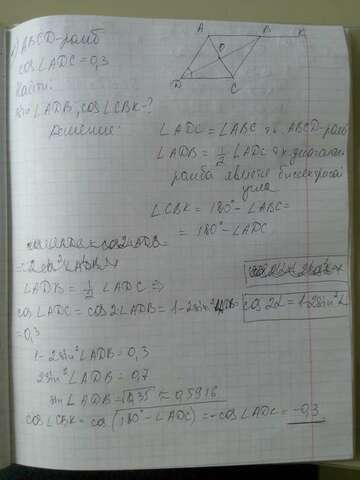 1) ABCD-ромб
cos∠ADC=0,3
Найти:
sin∠ADB, cos∠CBK-?
Решение:
A B K
O
D C
∠ADC=∠ABC т.к. ABCD-ромб
∠ADB=1/2∠ADC т.к диагонали
ромба является биссектрисой
угла
∠CBK=180°-∠ABC=
=180°-∠ADC
∠ADB=1/2∠ADC ⇒
cos∠ADC=cos2∠ADB=1-2sin²∠ADB=
cos2α=1-2sin²α
=0,3
1-2sin²∠ADB=0,3
2sin²∠ADB=0,7
sin∠ADB=√0,35≈0,5916
cos∠CBK=cos(180°-∠ADC)=-cos∠ADC=-0,3